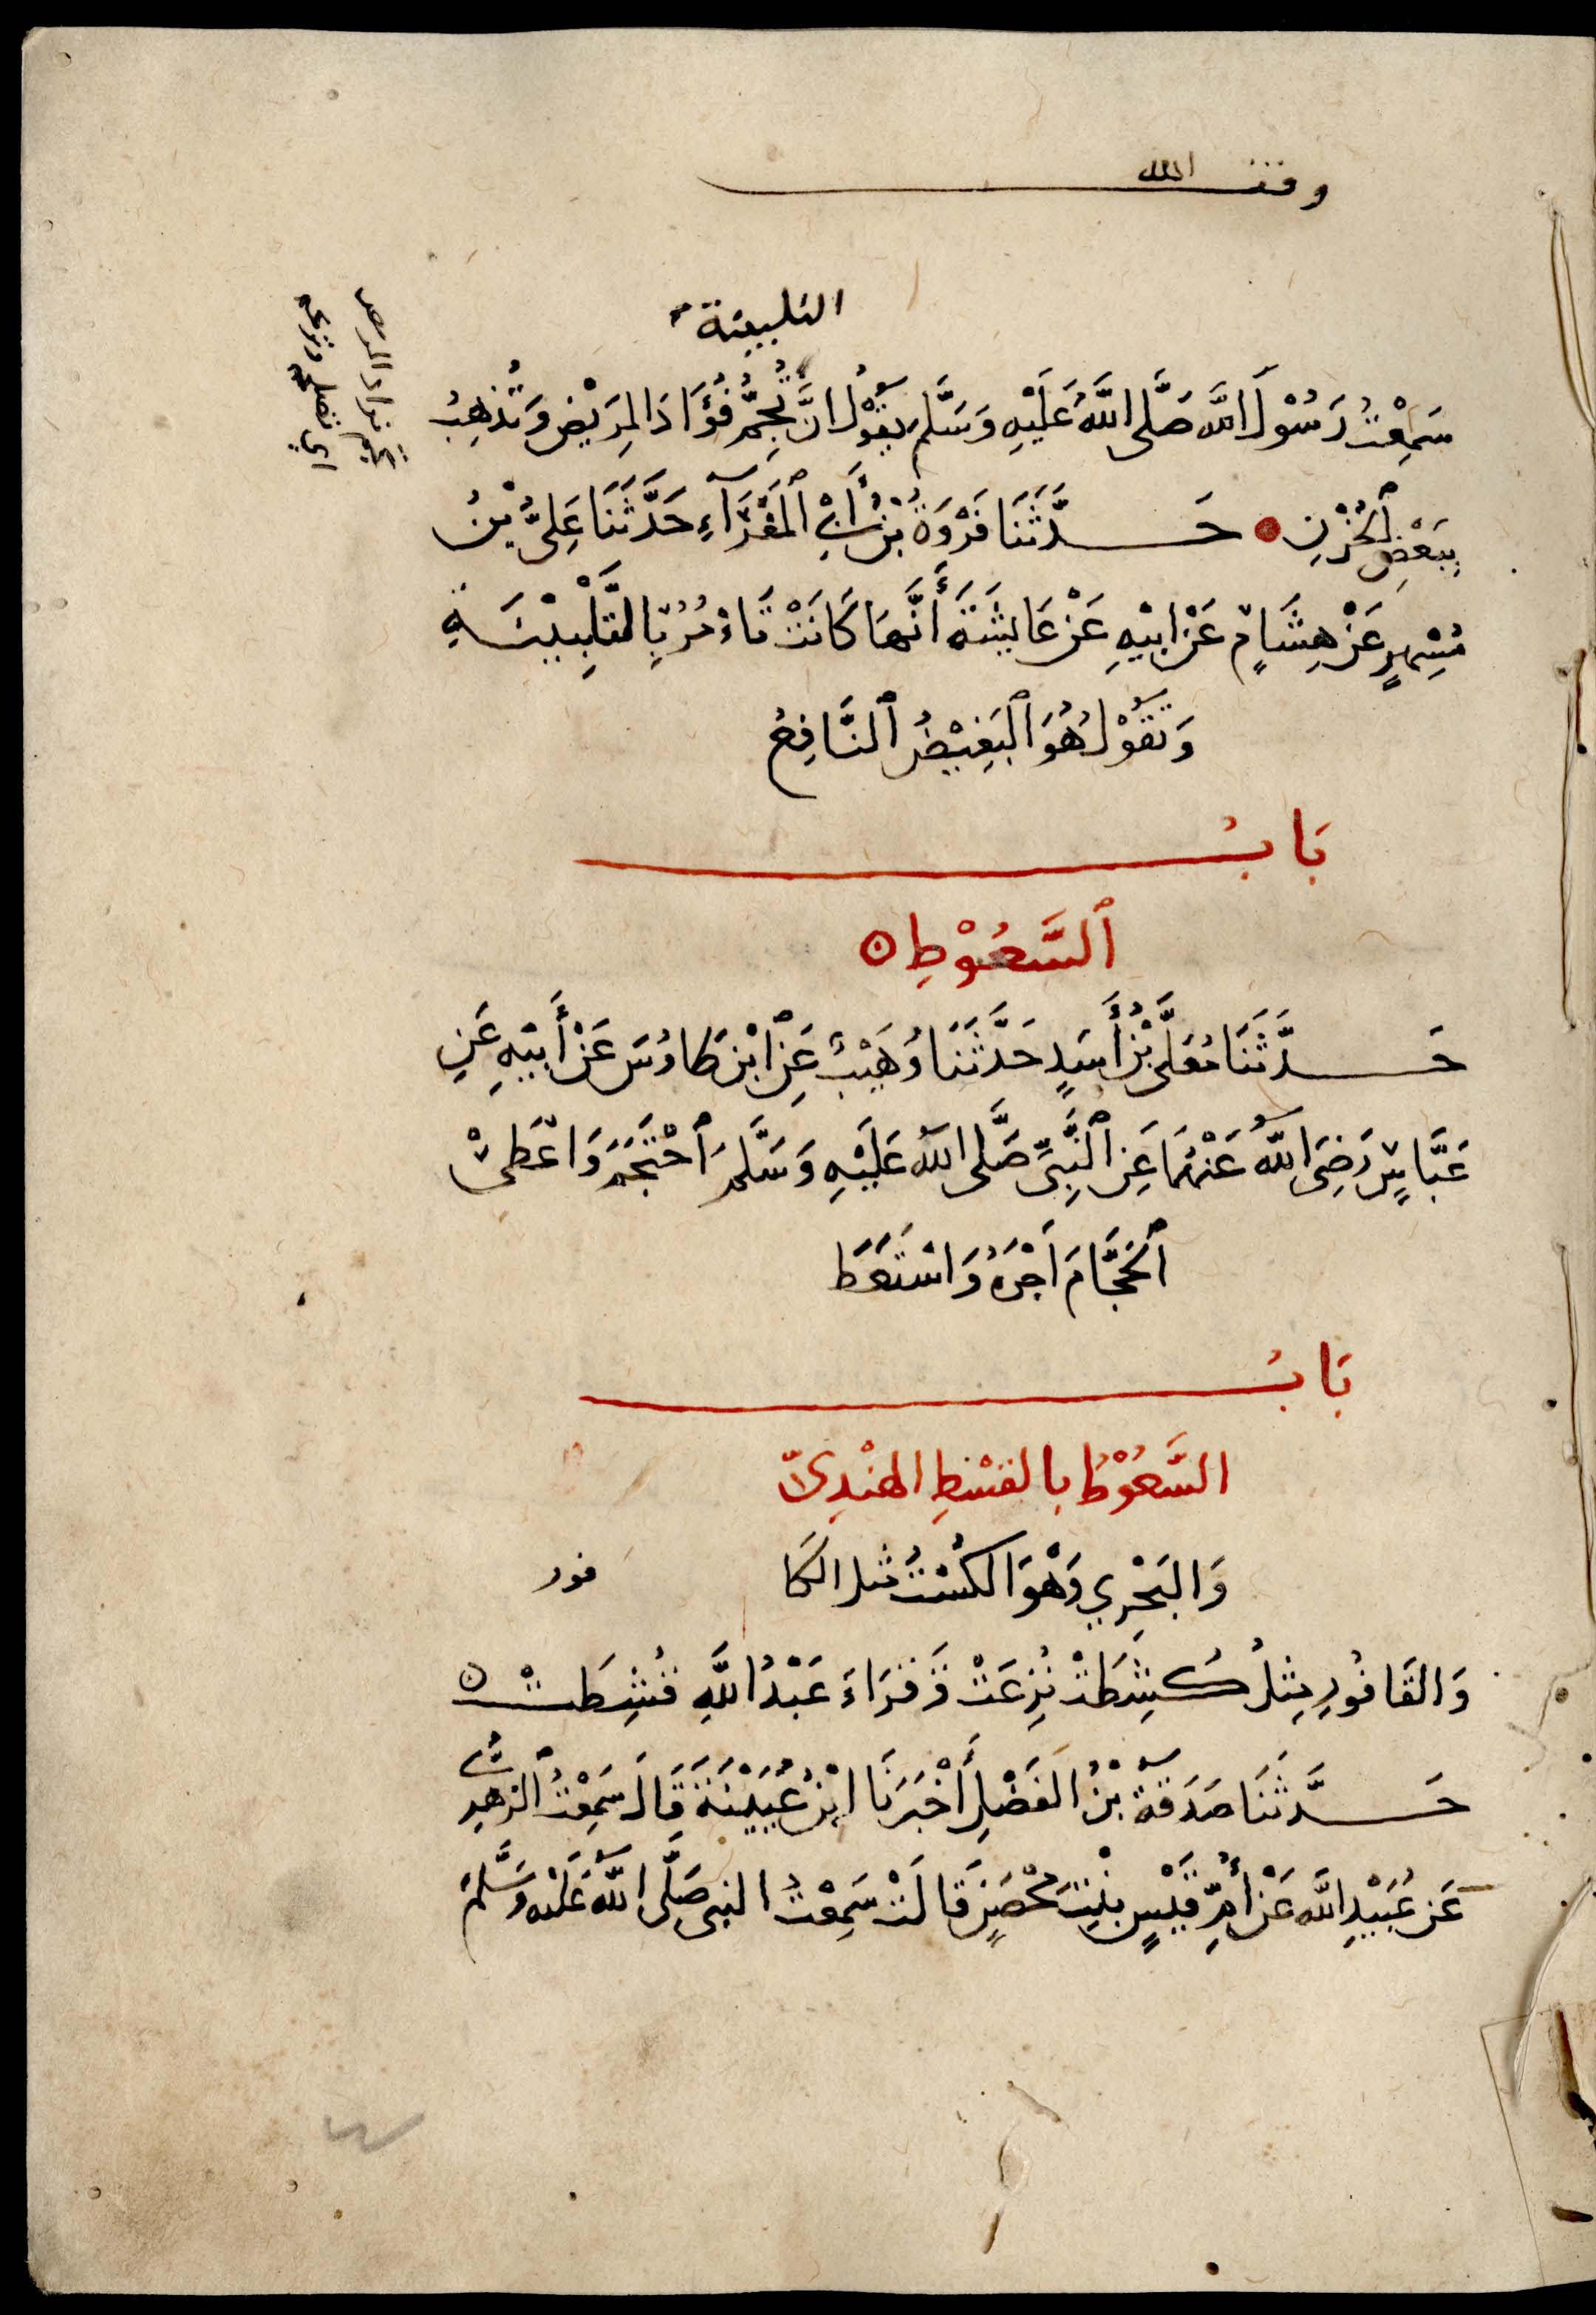 وقف الله
التلبينة
سَمِعْتُ رَسُوْلَ اللّٰه صَلَّى اللّٰهُ عَلَيْهِ وَسَلَّم يَقُوْلُ انَّ تُجِمُّ فُؤَادَ المَرِيْضِ وَتُذْهِبُ
بِبَعْضِ ٱلحُزْنِ حَدَّثَنَا فَرْوَةُ بْنُ أَبِي ٱلمَغْرَآءِ حَدَّثَنَا عَلِيُّ بْنُ
مُسْهِرٍ عَنْ هِشَامٍ عَنْ ابِيْهِ عَنْ عَايِشَةَ أَنَّهَا كَانَتْ تَاْمُرُ بِالتَّلْبِيْنَةِ
وَتَقُوْلُ هُوَ ٱلبَغِيْضُ ٱلنَّافِعُ
بَابُ
ٱلسَّعُوْطِ
حَدَّثَنَا مُعَلَّى بْنُ أَسَدٍ حَدَّثَنَا وُهَيْبٌ عَنِ ٱبْنِ طَاوُسَ عَنْ أَبِيْهِ عَنِ
عَبَّاسٍ رَضِىَ اللّٰهُ عَنْهُمَا عَنِ ٱلنَّبِىِّ صَلَّى اللّٰه عَلَيْهِ وَسَلَّمَ ٱحْتَجَمَ وَاعْطَى
ٱلحَجَّامَ اَجْرَهُ وَاسْتَعَطَ
بَابُ
السَّعُوْطُ بالقسْطِ الهنْدِىّ
وَالبَحْرِي وَهْوَ الكُسْتُ مثل الكَا فور
وَالقَافُورِ مِثلُ كُشِطَتْ نُزِعَتْ وَقَرَاءَ عَبْدُ اللَّهِ قُشِطَتْ
حَدَّثَنَا صَدَقَةُ بْنُ الفَضْلِ أَخْبَرَنَا ابْنُ عُيَيْنَةَ قَالَ سَمِعْتُ ٱلزهرِىَّ
عَن عُبَيْدِ اللّٰه عَنْ أُمِّ قَيْسٍ بِنْتِ مِحْصَنٍ قَالَتْ سَمِعْتُ النبى صَلَّى اللّٰهُ عَلَيْه وَسَلَّمَ